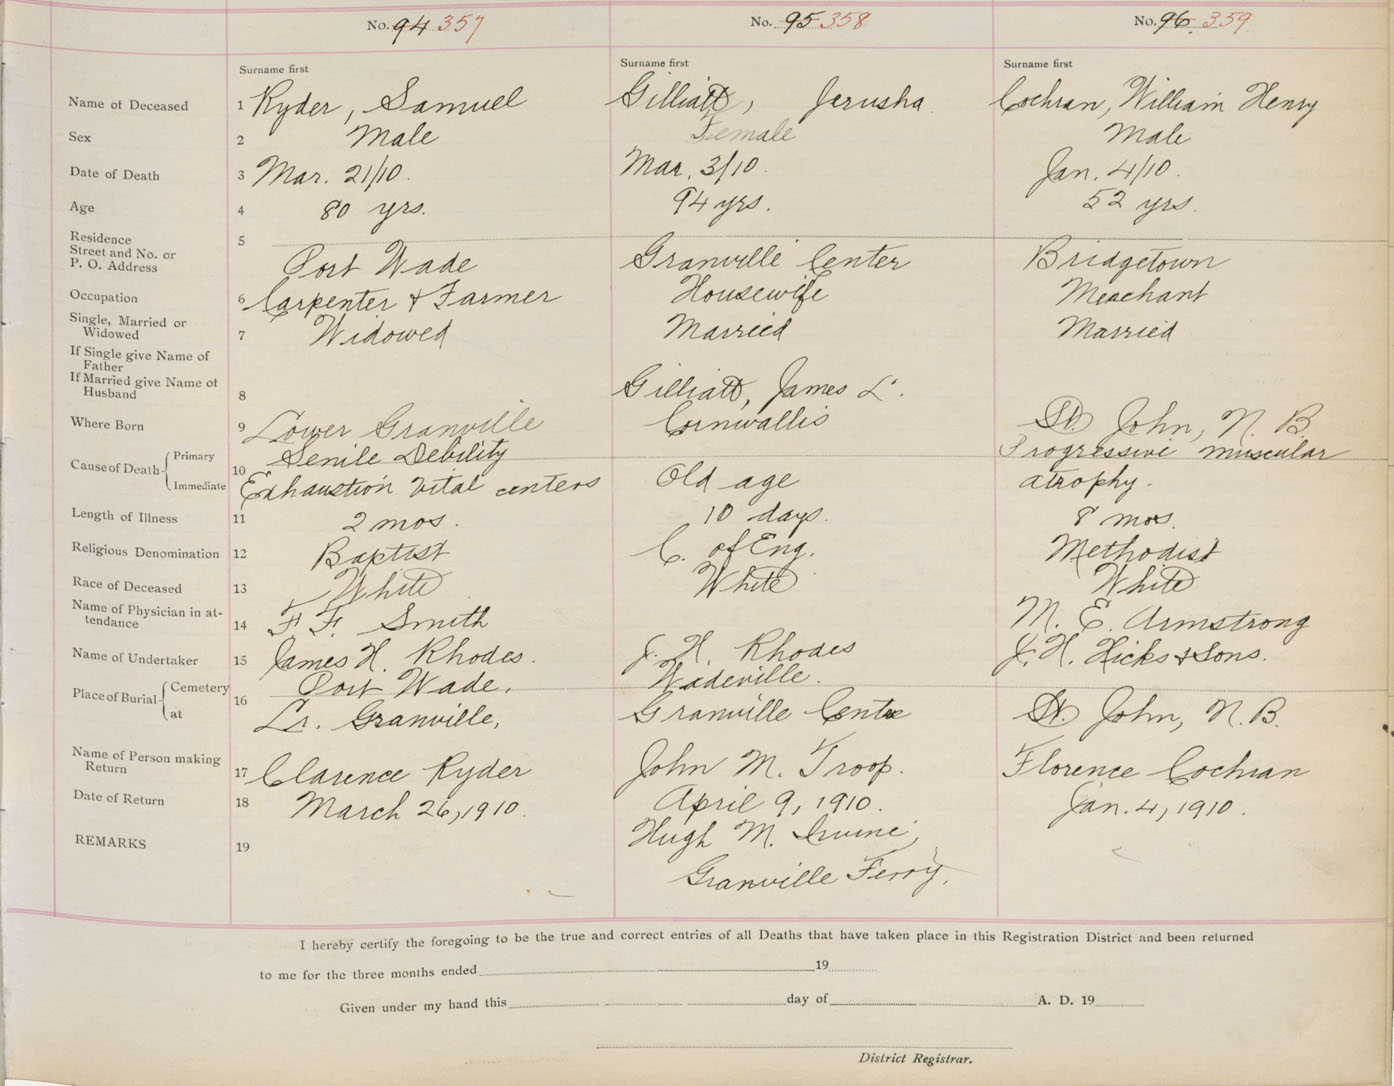 No. 94 357 No. 95 358 No. 96 359
Surname first Surname first Surname first
Name of Deceased 1 Ryder, Samuel Gilliatt, Jerusha Cochran, William Henry
Sex 2 Male Female Male
Date of Death 3 Mar. 21/10. Mar. 3/10. Jan. 4/10.
Age 4 80 yrs. 94 yrs. 52 yrs.
Residence 5
Street and No. or
P. O. Address Port Wade Granville Center Bridgetown
Occupation 6 Carpenter & Farmer Housewife Merchant
Single, Married or
Widowed 7 Widowed Married Married
If Single give Name of
Father
If Married give Name of
Husband 8 Gilliatt, James L.
Where Born 9 Lower Granville Cornwallis St. John, N. B.
Cause of Death Primary Senile Debility Progressive muscular
10
Immediate Exhaustion vital centers Old age atrophy.
Length of Illness 11 2 mos. 10 days. 8 mos.
Religious Denomination 12 Baptist C. of Eng. Methodist
Race of Deceased 13 White White White
Name of Physician in at-
tendance 14 F. F. Smith M. E. Armstrong
Name of Undertaker 15 James H. Rhodes. J. H. Rhodes J. H. Hicks & Sons.
Place of Burial Cemetery Port Wade, Wadeville.
16
at Lr. Granville, Granville Centre St. John, N. B.
Name of Person making
Return 17 Clarence Ryder John M. Troop. Florence Cochran
Date of Return 18 March 26, 1910. April 9, 1910. Jan. 4, 1910.
REMARKS 19 Hugh M. Irvine,
Granville Ferry.
I hereby certify the foregoing to be the true and correct entries of all Deaths that have taken place in this Registration District and been returned
to me for the three months ended 19
Given under my hand this day of A. D. 19
District Registrar.